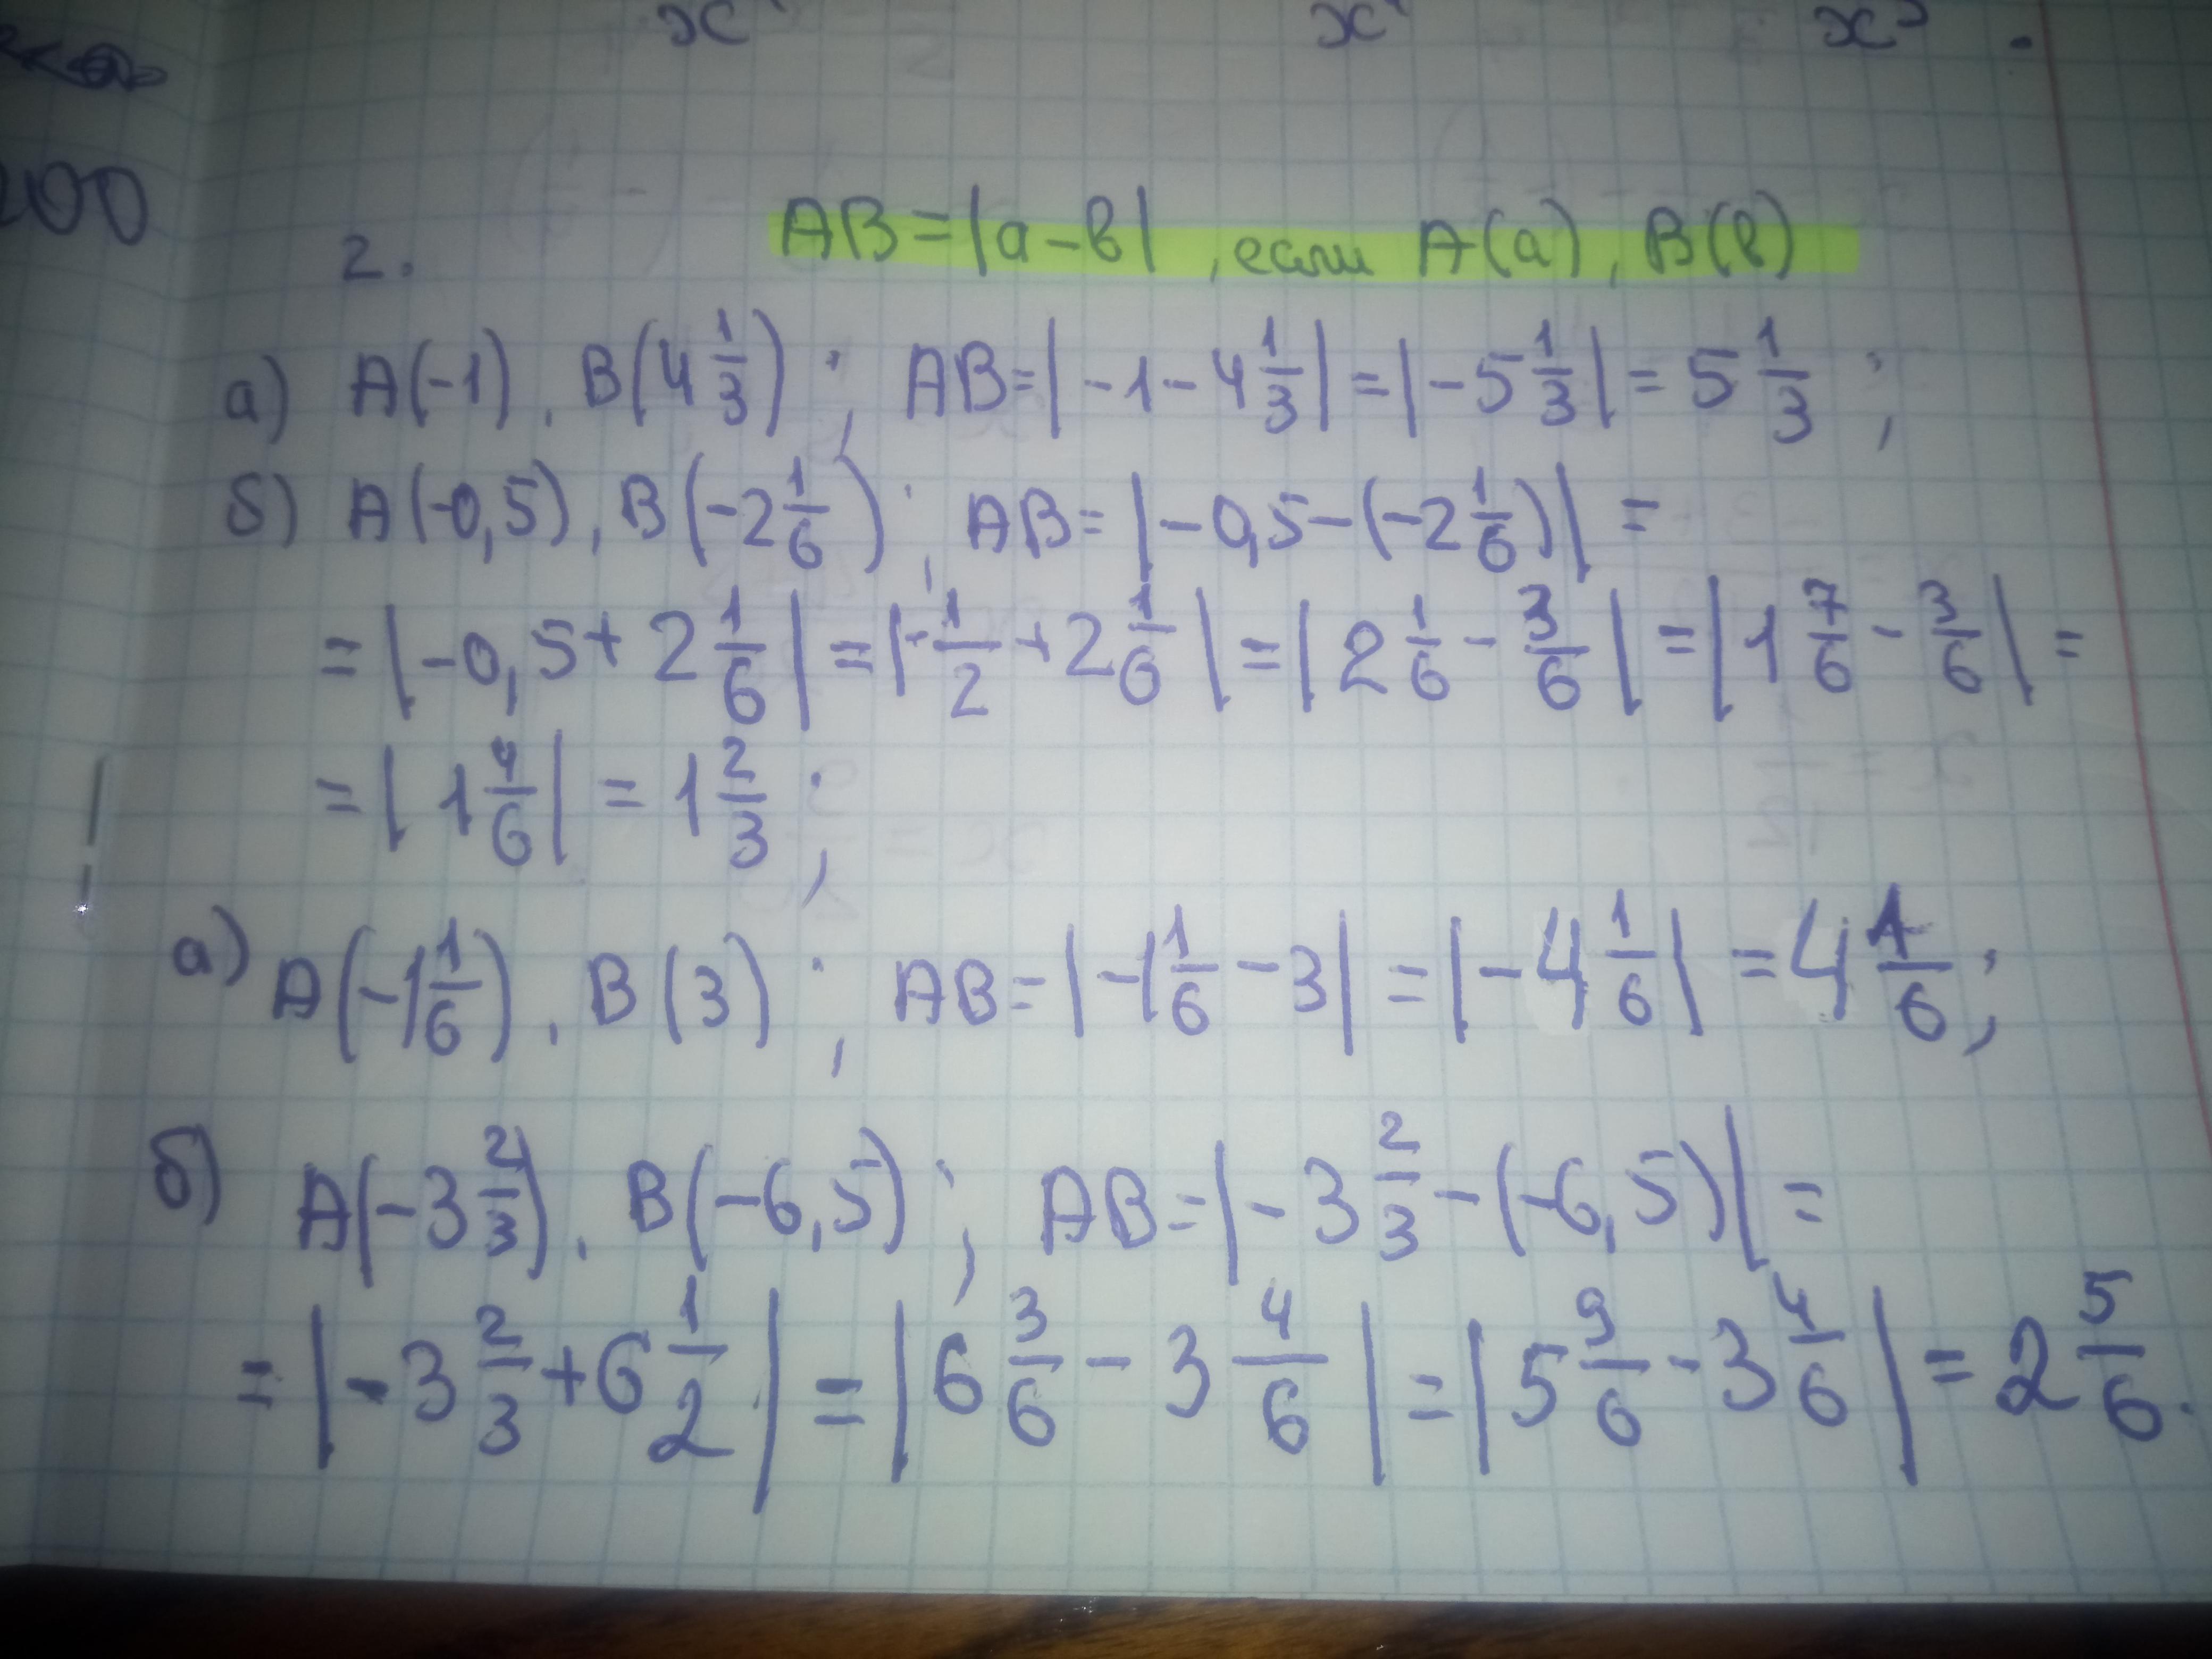 x x x³.
200
2. AB=|a-b|, если A(a), B(b)
a) A(-1), B(4 1/3); AB=|-1-4 1/3|=|-5 1/3|=5 1/3;
б) A(-0,5), B(-2 1/6); AB=|-0,5-(-2 1/6)|=
=|-0,5+2 1/6|=|-1/2+2 1/6|=|2 1/6-3/6|=|1 7/6-3/6|=
=|1 4/6|=1 2/3;
a) A(-1 1/6), B(3); AB=|-1 1/6-3|=|-4 1/6|=4 1/6;
б) A(-3 2/3), B(-6,5); AB=|-3 2/3-(-6,5)|=
=|-3 2/3+6 1/2|=|6 3/6-3 4/6|=|5 9/6-3 4/6|=2 5/6.